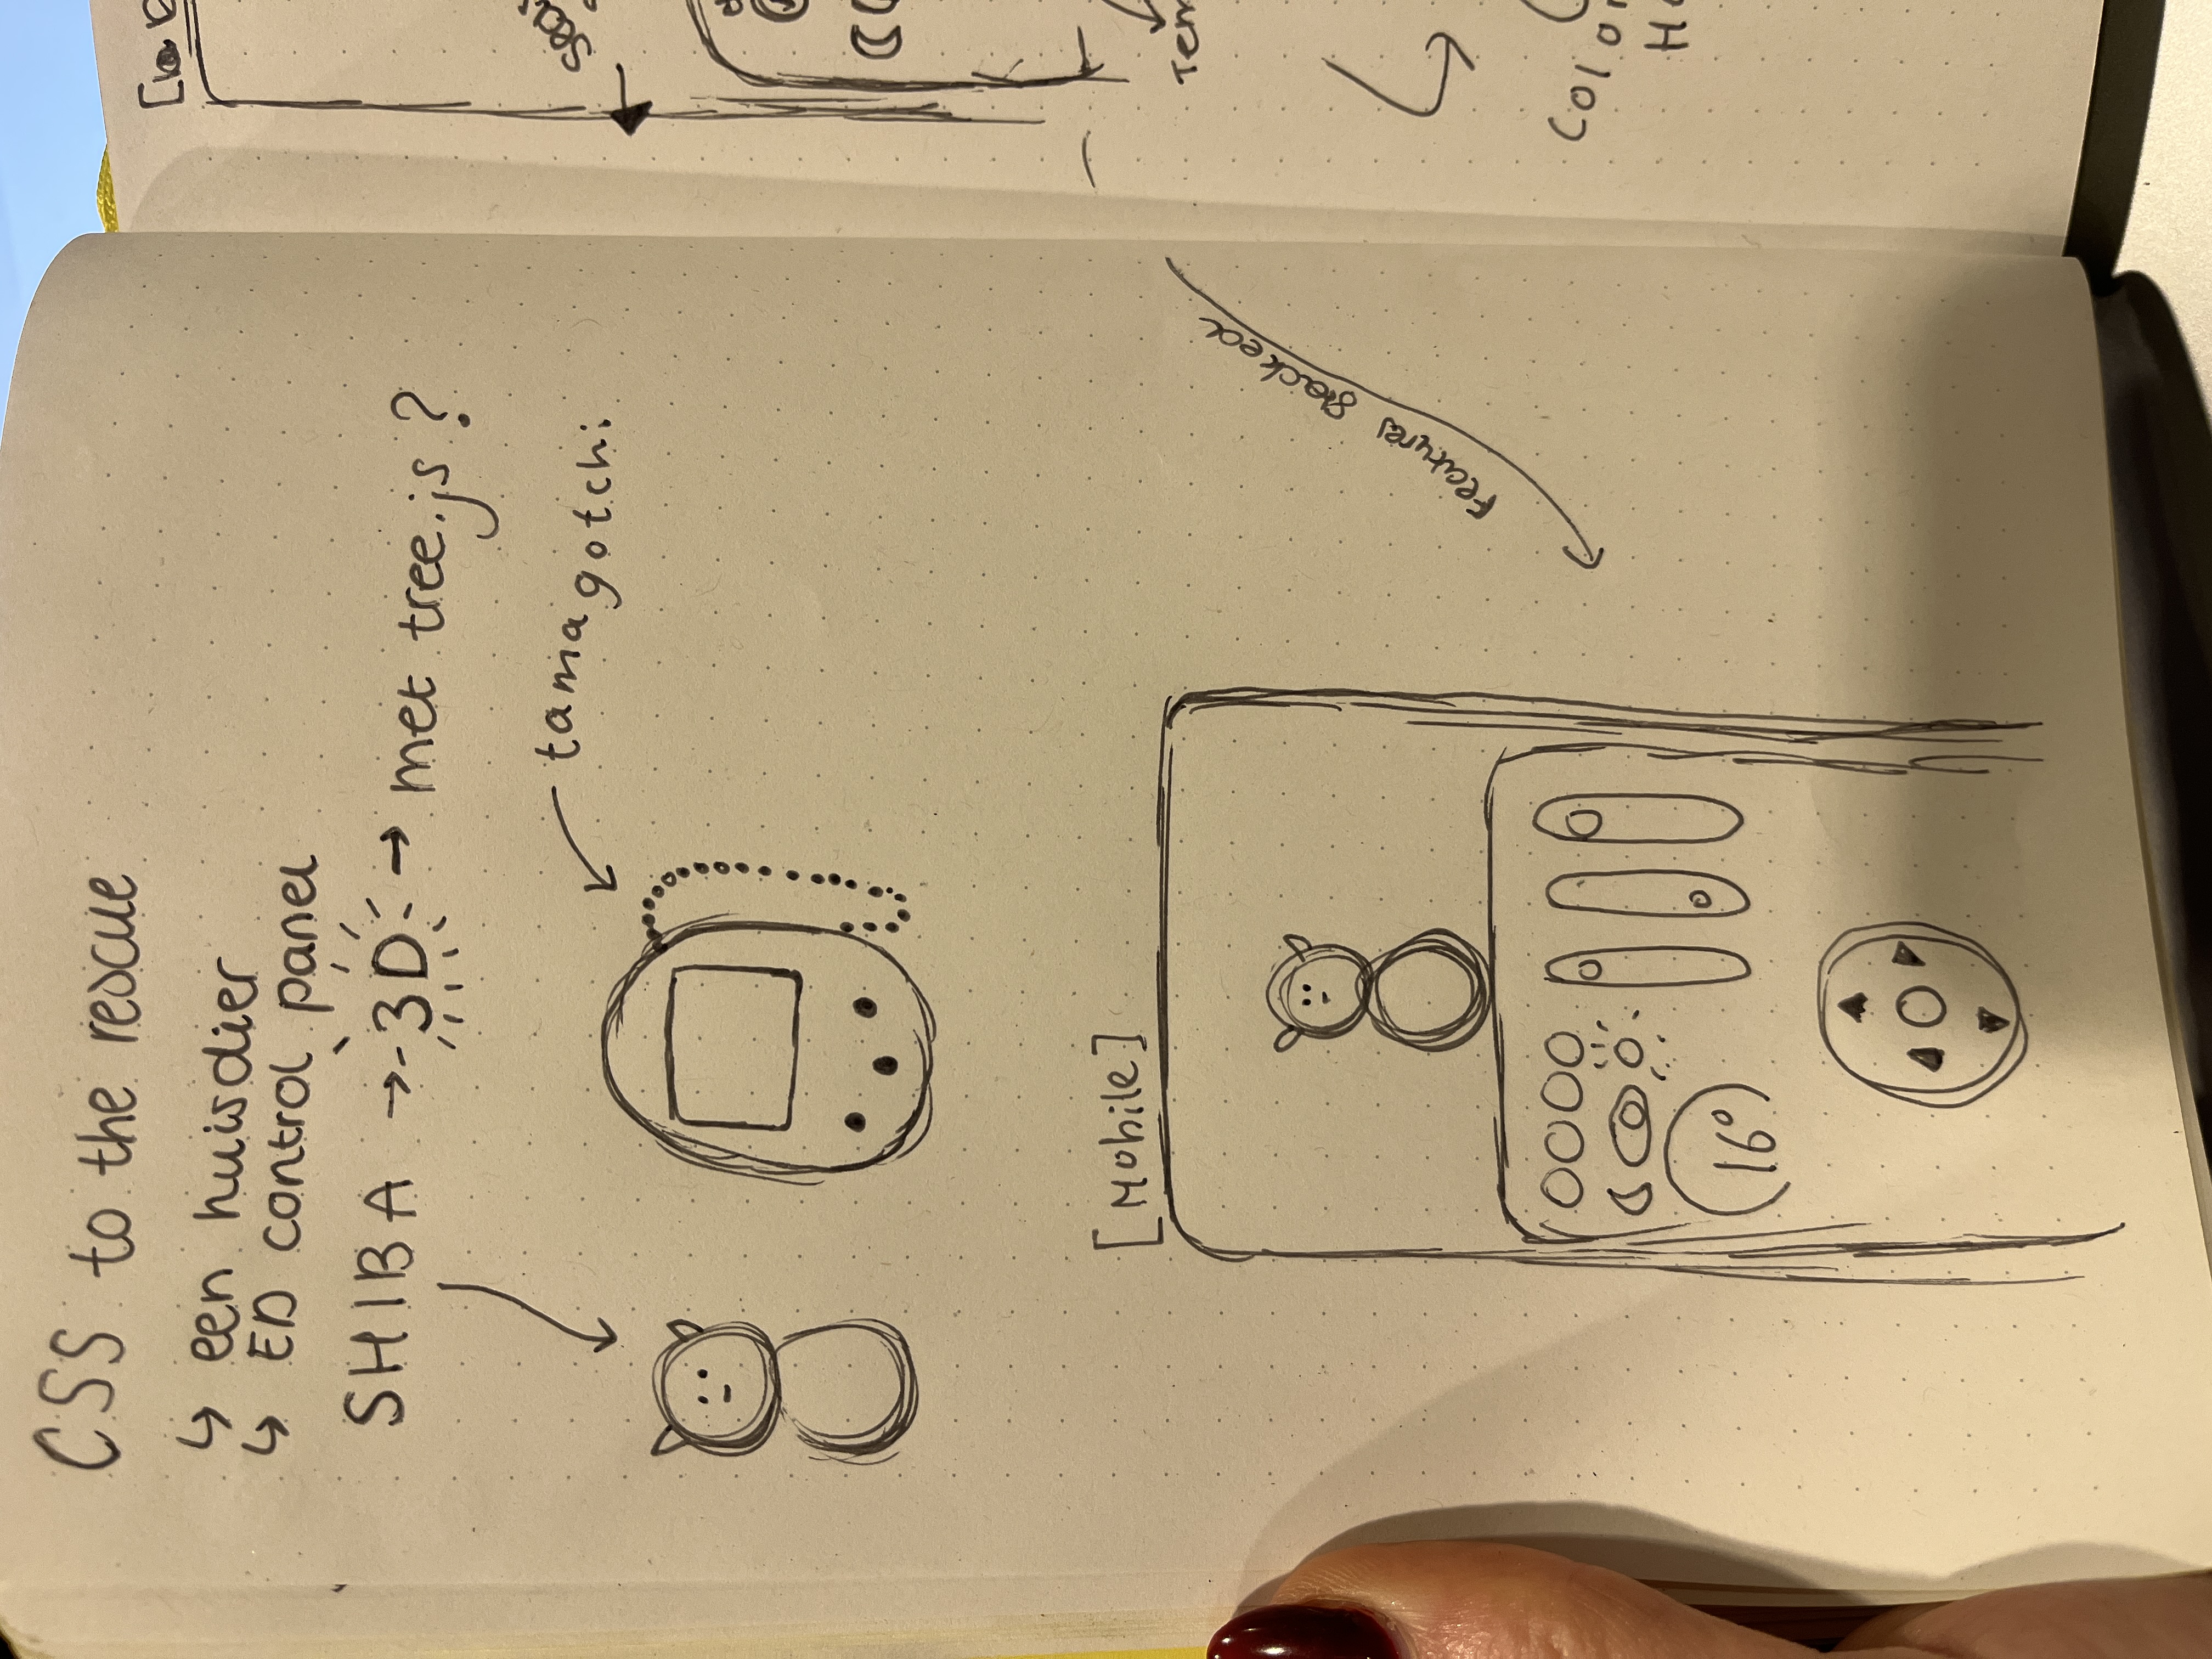 CSS to the rescue
↳ een huisdier
↳ ED control panel
SHIBA → 3D → met tree.js?
tamagotchi
[Mobile]
Features Stacked
16°